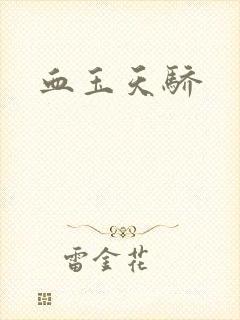 血玉天驕
雷金花